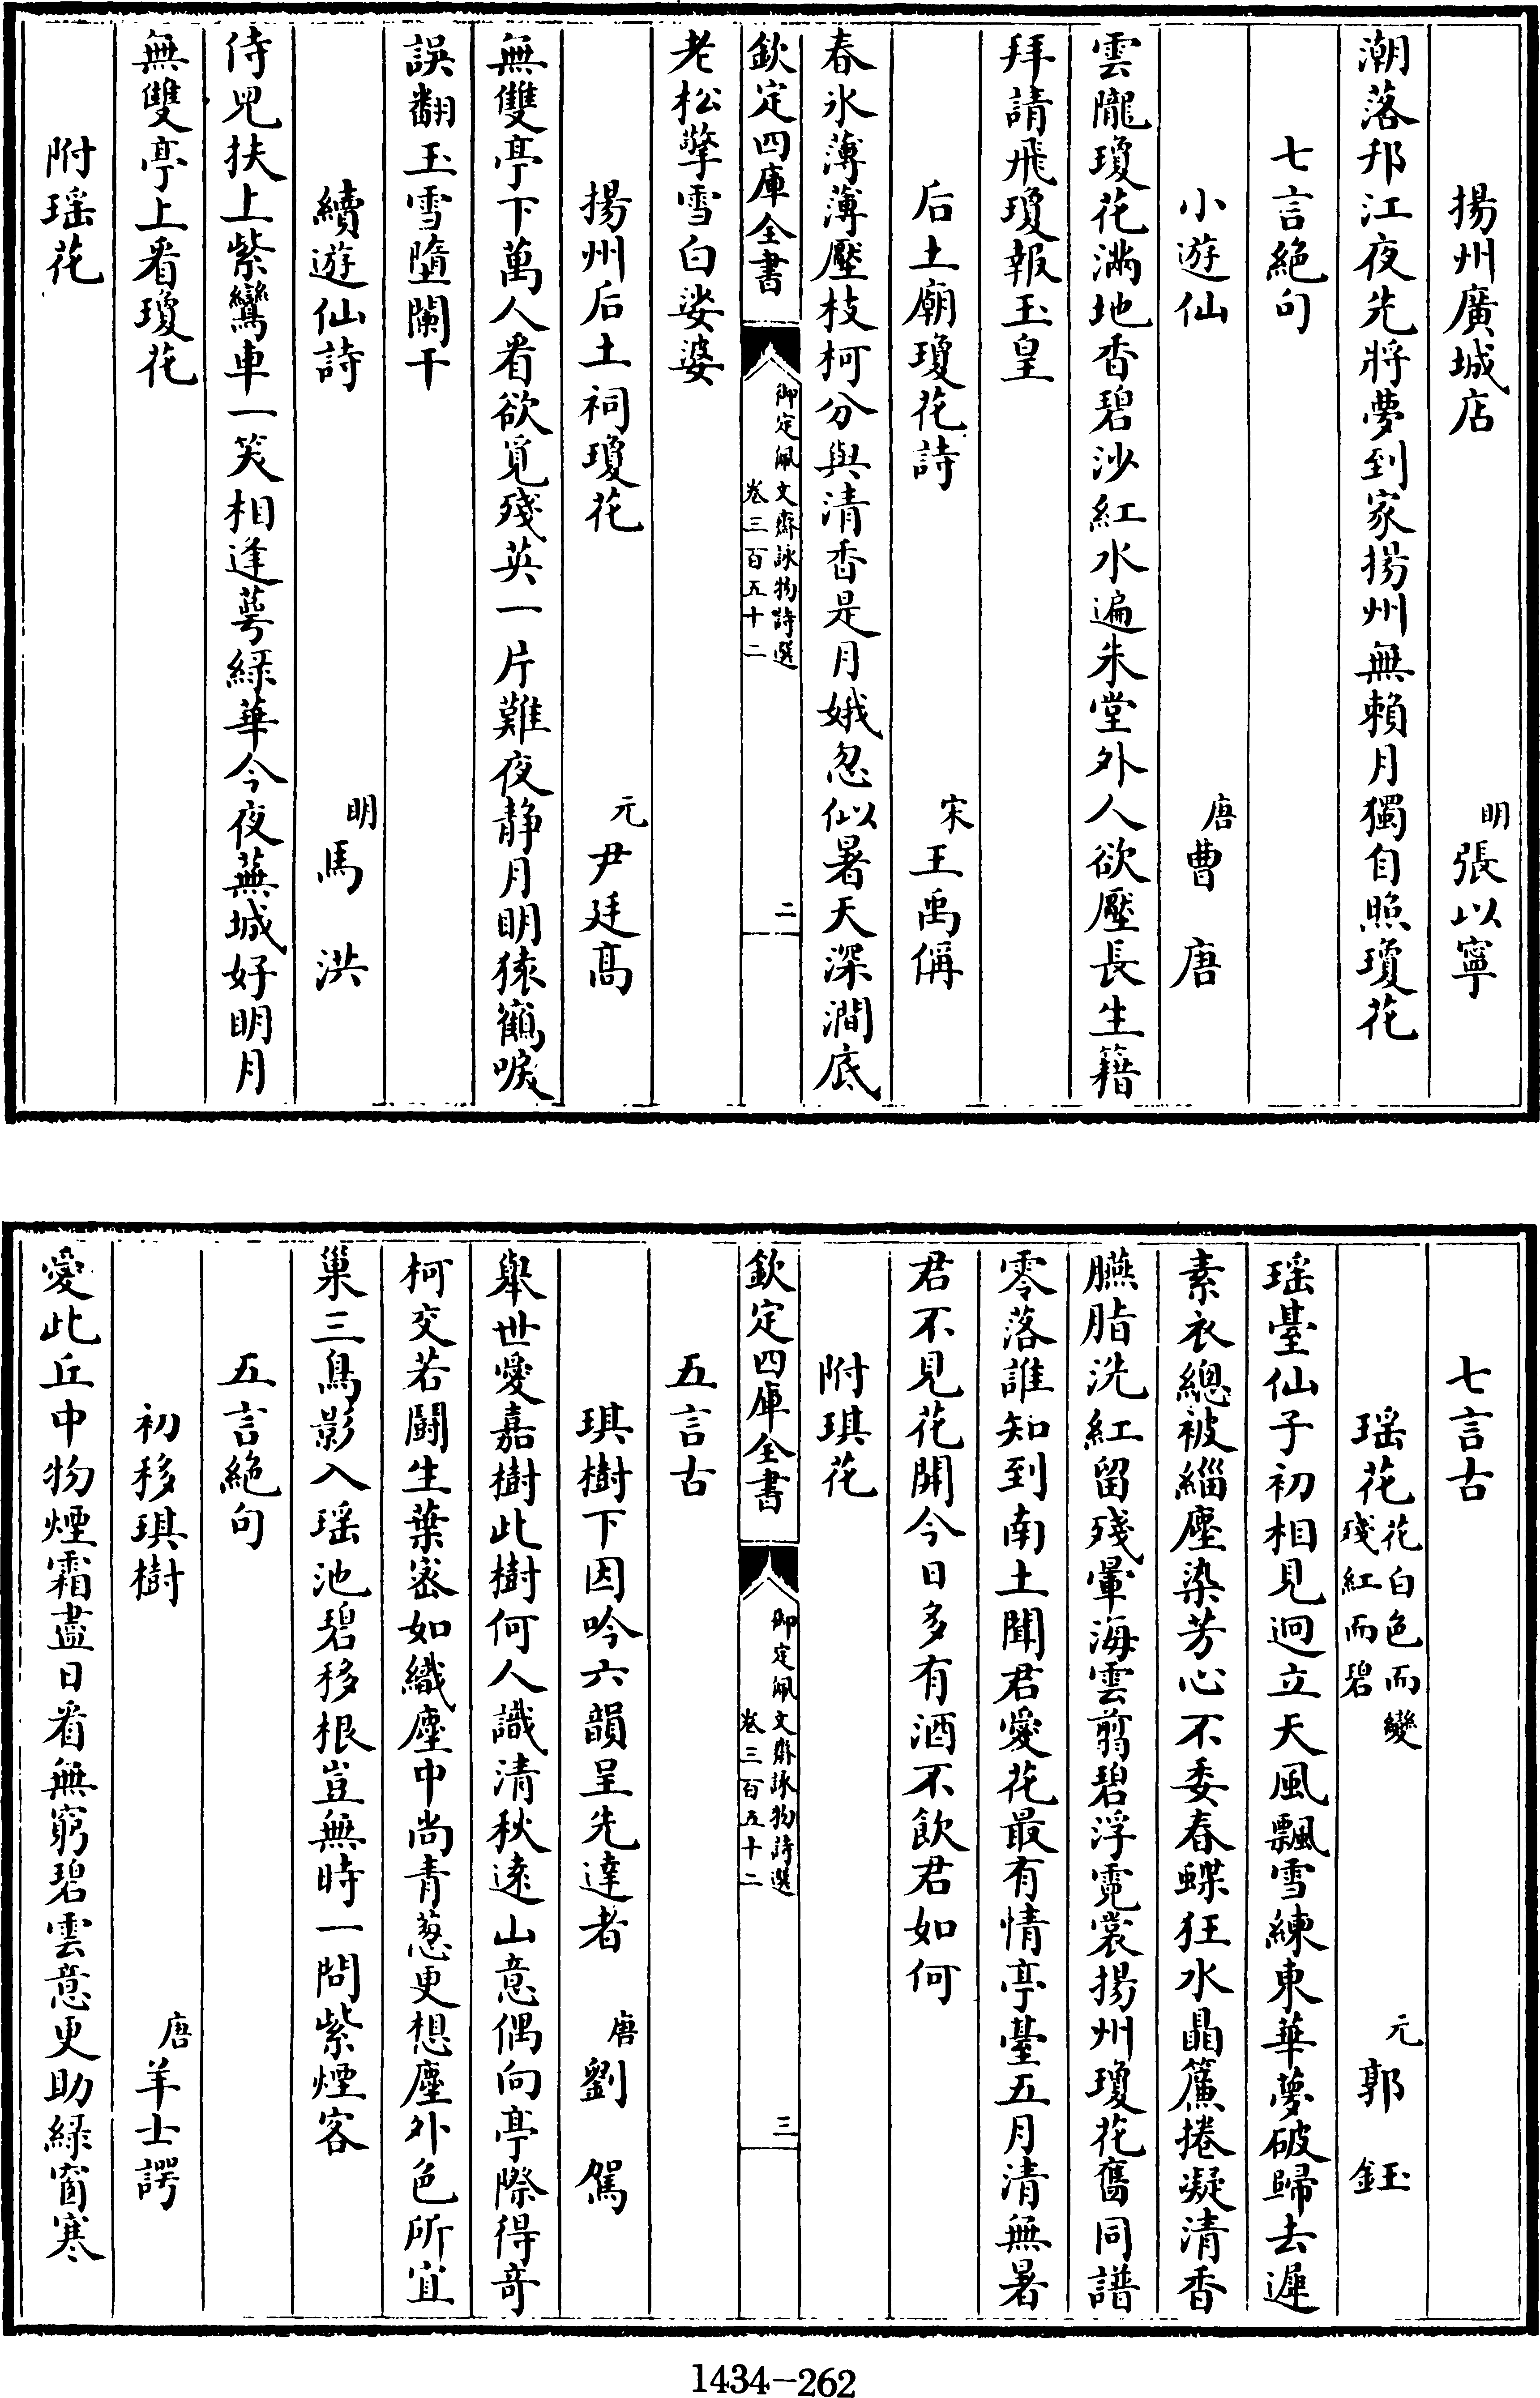 揚州廣城店 明 張以寧
潮落邗江夜先將夢到家揚州無賴月獨自照瓊花
七言絶句
小遊仙 唐 曹唐
雲隴瓊花滿地香碧沙紅水遍朱堂外人欲壓長生籍
拜請飛瓊報玉皇
后土廟瓊花詩 宋 王禹偁
春氷薄薄壓枝柯分與清香是月娥忽似暑天深澗底
欽定四庫全書 御定佩文齋詠物詩選 卷三百五十二 二
老松擎雪白娑婆
揚州后土祠瓊花 元 尹廷髙
無雙亭下萬人看欲覓殘英一片難夜静月明猿鶴唳
誤翻玉雪墮闌干
續遊仙詩 明 馬洪
侍兒扶上紫鸞車一笑相逢萼緑華今夜蕪城好明月
無雙亭上看瓊花
附瑶花
七言古
瑶花 花白色而變殘紅而碧 元 郭鈺
瑶臺仙子初相見迥立天風飄雪練東華夢破歸去遲
素衣總被緇塵染芳心不委春蝶狂水晶簾捲凝清香
臙脂洗紅留殘暈海雲翦碧浮霓裳揚州瓊花舊同譜
零落誰知到南土聞君愛花最有情亭臺五月清無暑
君不見花開今日多有酒不飲君如何
附琪花
欽定四庫全書 御定佩文齋詠物詩選 卷三百五十二 三
五言古
琪樹下因吟六韻呈先達者 唐 劉駕
舉世愛嘉樹此樹何人識清秋逺山意偶向亭際得奇
柯交若鬭生葉宻如織塵中尚青葱更想塵外色所宜
巢三鳥影入瑶池碧移根豈無時一問紫煙客
五言絶句
初移琪樹 唐 羊士諤
愛此丘中物煙霜盡日看無窮碧雲意更助緑窗寒
1434-262